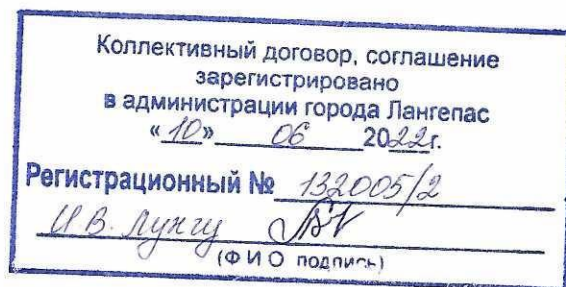 Коллективный договор, соглашение
зарегистрировано
в администрации города Лангепас
«10» 06 2022г.
Регистрационный № 132005/2
И.В. Лунгу
(Ф И О подпись)